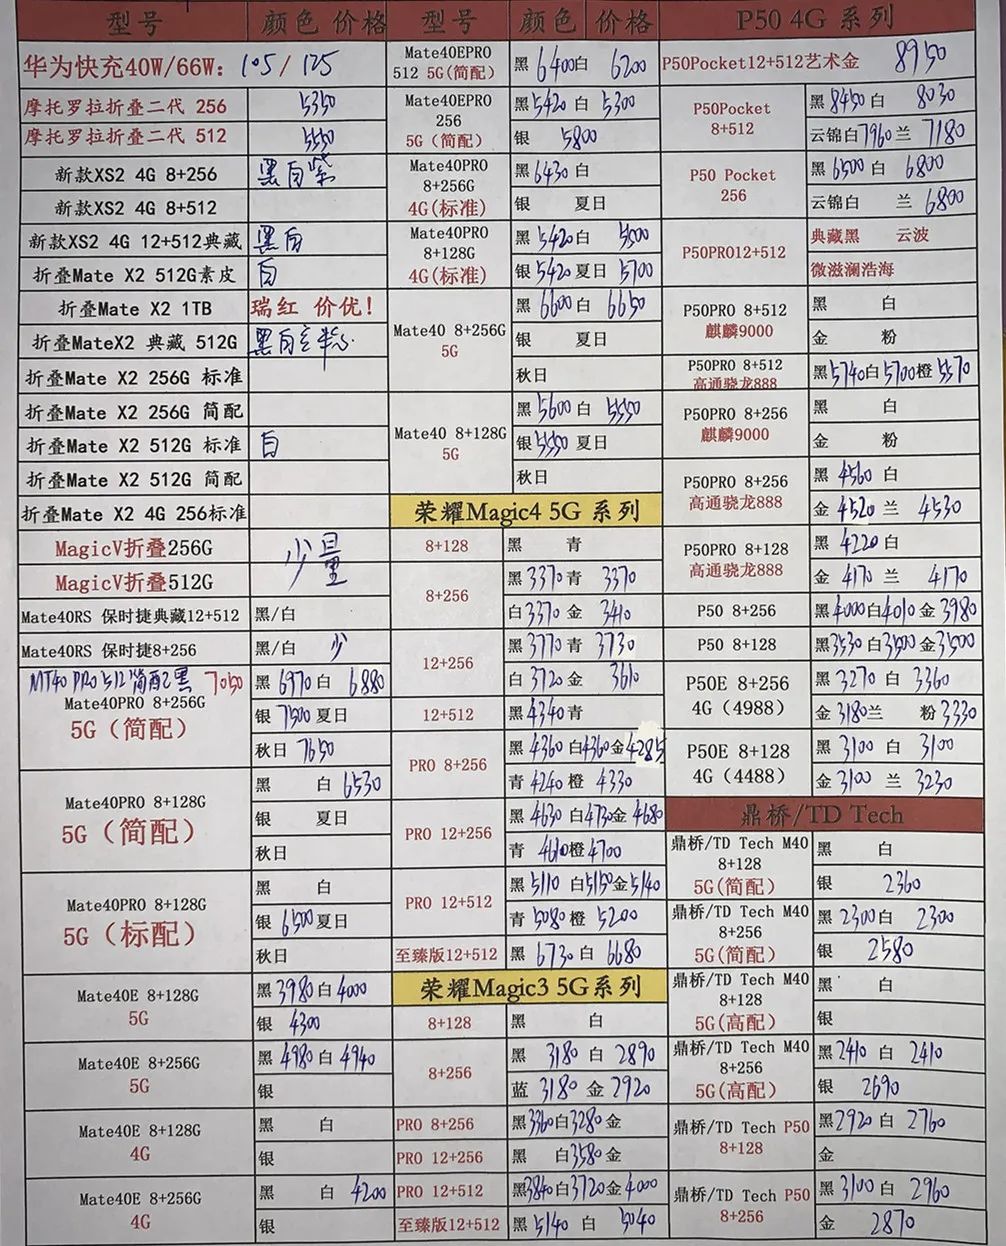 型号 颜色 价格
华为快充40W/66W: 105/125
摩托罗拉折叠二代 256 5350
摩托罗拉折叠二代 512 5550
新款XS2 4G 8+256 黑白紫
新款XS2 4G 8+512
新款XS2 4G 12+512典藏 黑白
折叠Mate X2 512G素皮 白
折叠Mate X2 1TB 瑞红 价优!
折叠MateX2 典藏 512G 黑白
折叠Mate X2 256G 标准
折叠Mate X2 256G 简配
折叠Mate X2 512G 标准 白
折叠Mate X2 512G 简配
折叠Mate X2 4G 256标准
MagicV折叠256G 少量
MagicV折叠512G
Mate40RS 保时捷典藏12+512 黑/白
Mate40RS 保时捷8+256 黑/白 少
MT40 PRO 512 简配黑 7050
Mate40PRO 8+256G
5G(简配)
黑 6970 白 6880
银 7500 夏日
秋日 7650
Mate40PRO 8+128G
5G(简配)
黑 白 6530
银 夏日
秋日
Mate40PRO 8+128G
5G(标配)
黑 白
银 6500 夏日
秋日
Mate40E 8+128G
5G
黑 3980 白 4000
银 4300
Mate40E 8+256G
5G
黑 4980 白 4940
银
Mate40E 8+128G
4G
黑 白
银
Mate40E 8+256G
4G
黑 白 4200
银
型号 颜色 价格
Mate40EPRO
512 5G(简配)
黑 6400 白 6200
Mate40EPRO
256
5G(简配)
黑 5420 白 5300
银 5800
Mate40PRO
8+256G
4G(标准)
黑 6430 白
银 夏日
Mate40PRO
8+128G
4G(标准)
黑 5420 白 5500
银 5420 夏日 5700
Mate40 8+256G
5G
黑 6600 白 6650
银 夏日
秋日
Mate40 8+128G
5G
黑 5600 白 5550
银 5550 夏日
秋日
荣耀Magic4 5G 系列
8+128 黑 青
8+256
黑 3370 青 3370
白 3370 金 3410
12+256
黑 3770 青 3730
白 3720 金 3610
12+512 黑 4340 青
PRO 8+256
黑 4360 白 4360 金 4285
青 4240 橙 4330
PRO 12+256
黑 4630 白 4730 金 4680
青 4610 橙 4700
PRO 12+512
黑 5110 白 5150 金 5140
青 5080 橙 5200
至臻版12+512 黑 6730 白 6680
荣耀Magic3 5G系列
8+128 黑 白
8+256
黑 3180 白 2890
蓝 3180 金 2920
PRO 8+256 黑 3360 白 3280 金
PRO 12+256 黑 白 3580 金
PRO 12+512 黑 3840 白 3720 金 4000
至臻版12+512 黑 5140 白 5040
P50 4G 系列
P50Pocket12+512艺术金 8950
P50Pocket
8+512
黑 8450 白 8030
云锦白 7960 兰 7180
P50 Pocket
256
黑 6500 白 6800
云锦白 兰 6800
P50PRO12+512
典藏黑 云波
微滋澜浩海
P50PRO 8+512
麒麟9000
黑 白
金 粉
P50PRO 8+512
高通骁龙888
黑 5740 白 5700 橙 5570
P50PRO 8+256
麒麟9000
黑 白
金 粉
P50PRO 8+256
高通骁龙888
黑 4560 白
金 4520 兰 4530
P50PRO 8+128
高通骁龙888
黑 4220 白
金 4170 兰 4170
P50 8+256 黑 4000 白 4010 金 3980
P50 8+128 黑 3530 白 3500 金 3500
P50E 8+256
4G(4988)
黑 3270 白 3360
金 3180 兰 粉 3330
P50E 8+128
4G(4488)
黑 3100 白 3100
金 3100 兰 3230
鼎桥/TD Tech
鼎桥/TD Tech M40
8+128
5G(简配)
黑 白
银 2360
鼎桥/TD Tech M40
8+256
5G(简配)
黑 2300 白 2300
银 2580
鼎桥/TD Tech M40
8+128
5G(高配)
黑 白
银
鼎桥/TD Tech M40
8+256
5G(高配)
黑 2410 白 2410
银 2690
鼎桥/TD Tech P50
8+128
黑 2920 白 2760
金
鼎桥/TD Tech P50
8+256
黑 3100 白 2960
金 2870